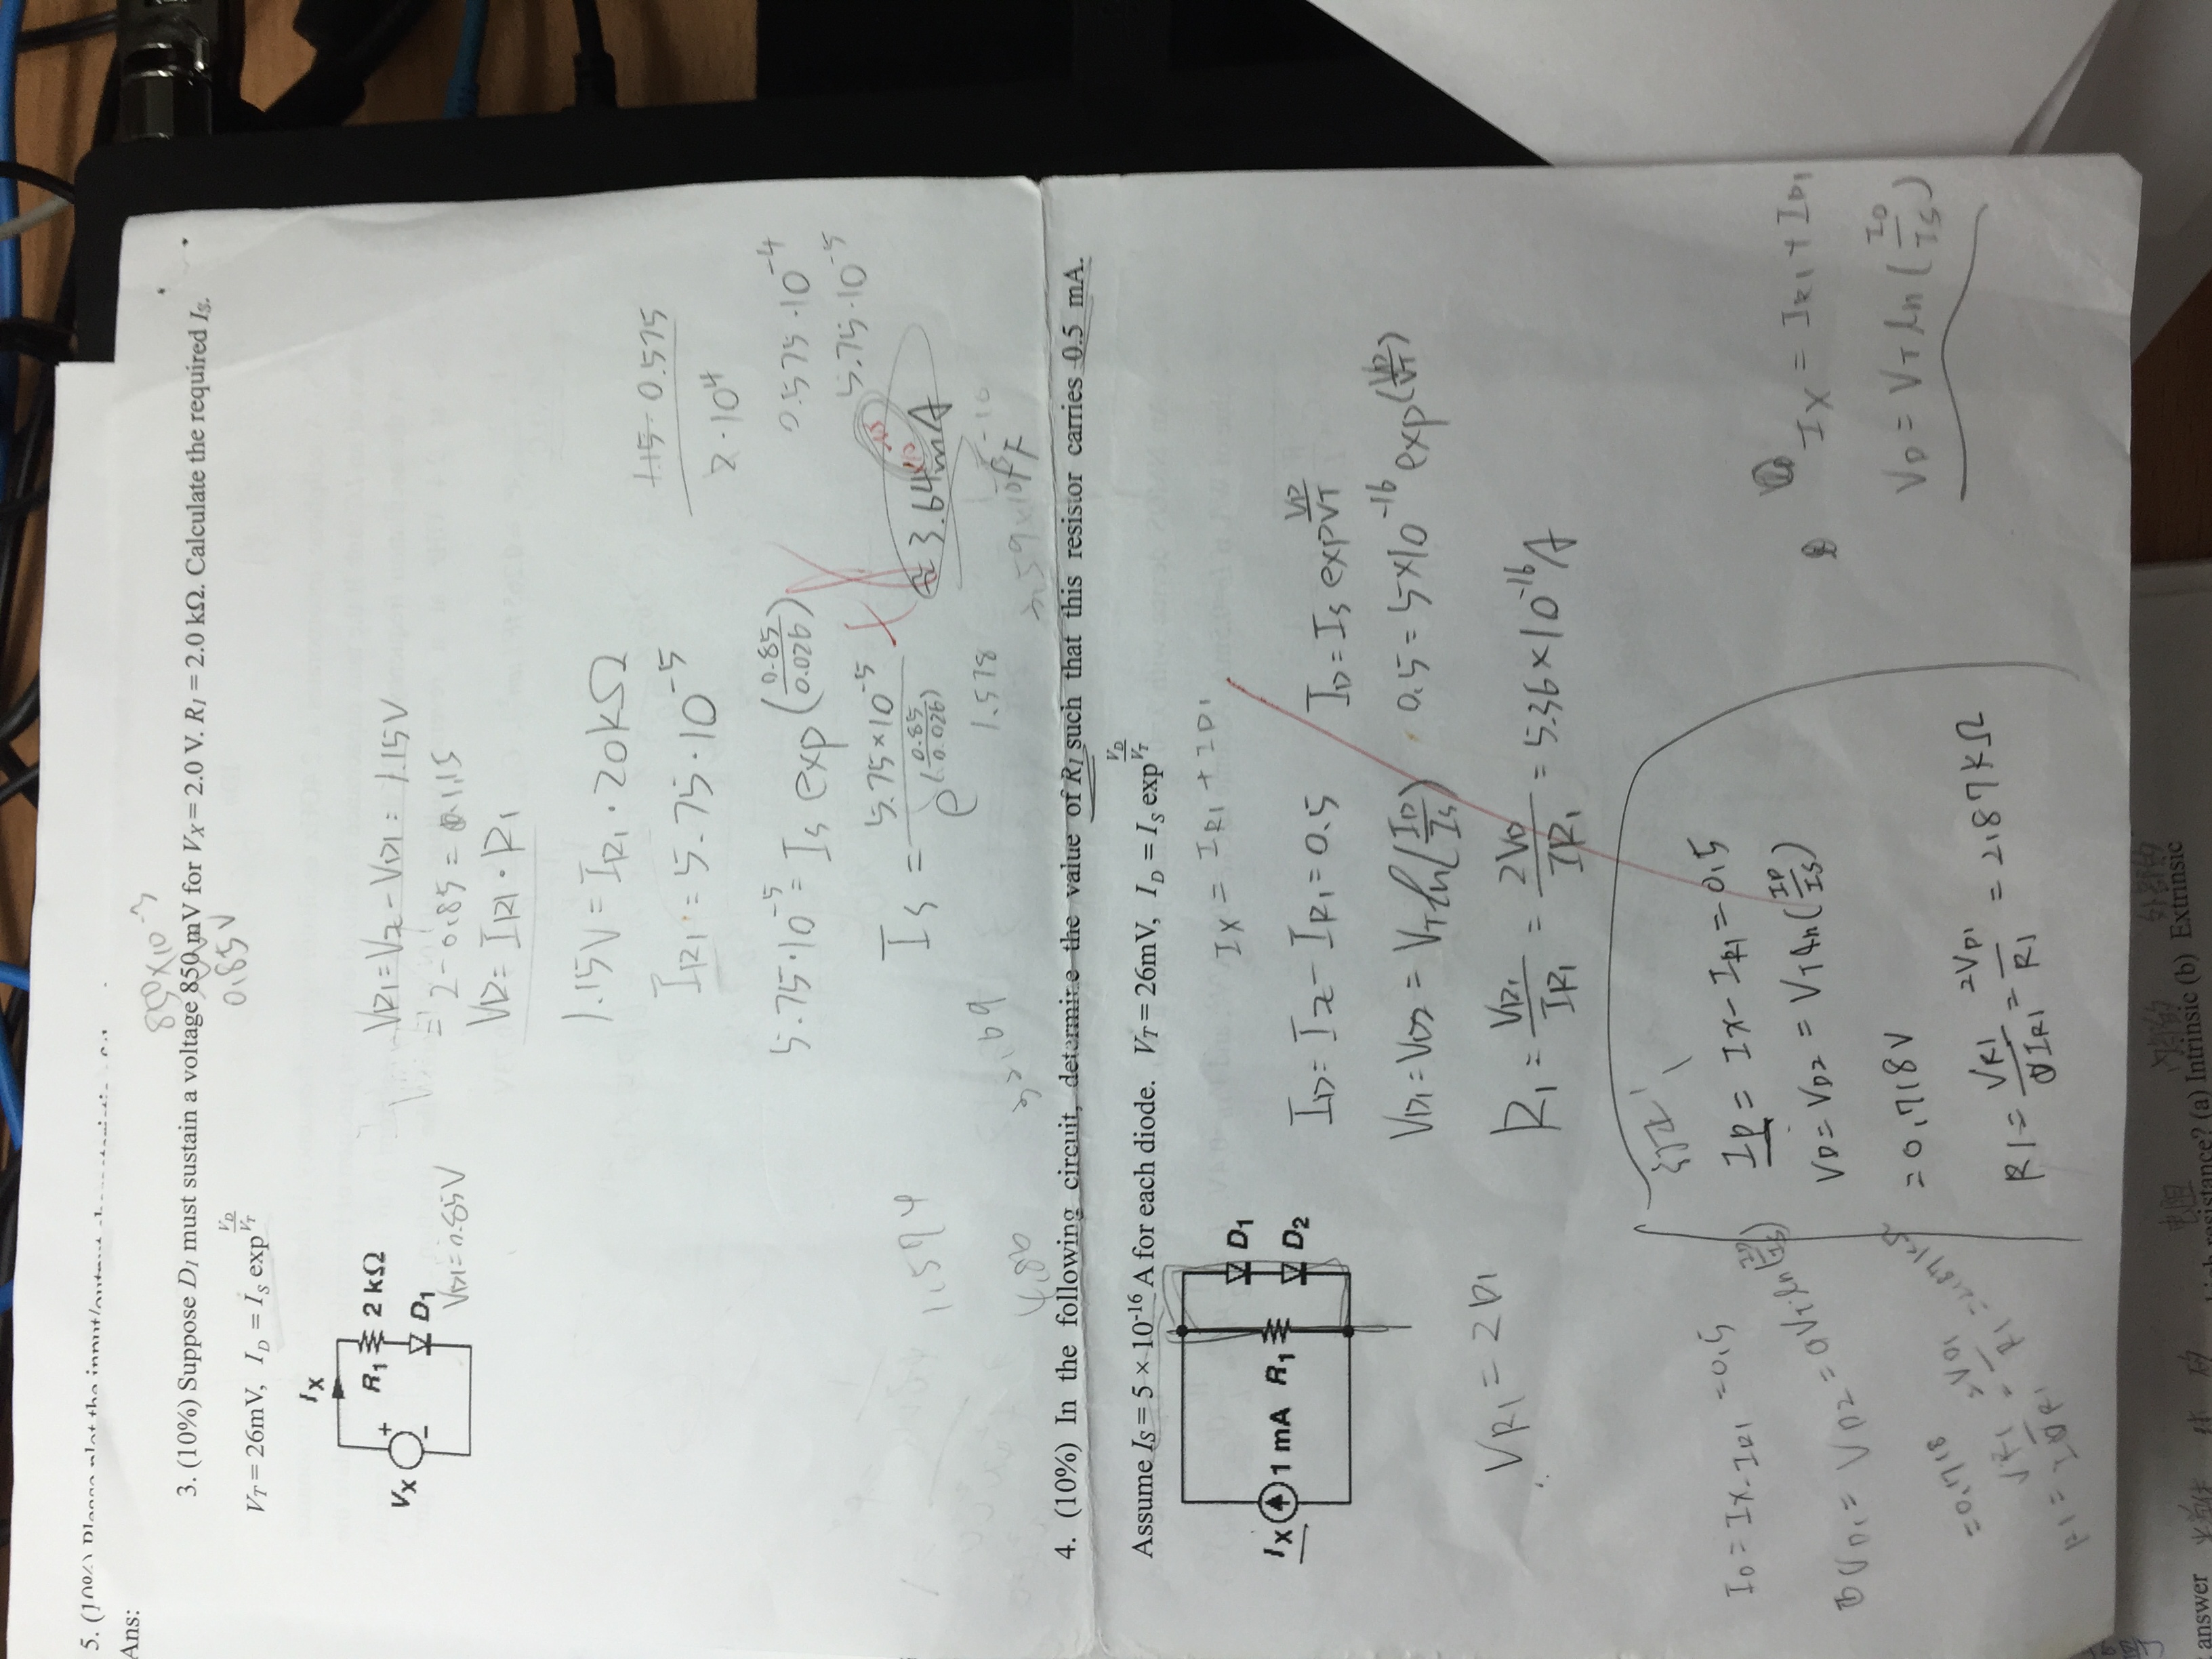 5. (10%) Please plot the input/output
Ans:
850×10⁻³
3. (10%) Suppose D₁ must sustain a voltage 850 mV for Vx = 2.0 V. R₁ = 2.0 kΩ. Calculate the required Is.
0.85V
V_T = 26mV, I_D = I_S exp^(V_D/V_T)
Ix
R₁ 2 kΩ
Vx
+
-
D₁
V_D1 = 0.85V
V_R1 = Vx - V_D1 = 1.15V
= 2-0.85 = 1.15
V_R = I_R1 · R₁
1.15V = I_R1 · 20kΩ
I_R1 = 5.75·10⁻⁵
1.15 0.575
2·10⁴
5.75·10⁻⁵ = Is exp(0.85/0.026)
0.575·10⁻⁴
5.75·10⁻⁵
Is = 5.75×10⁻⁵ / e^(0.85/0.026) ≈ 3.64 mA
1.574
1.578
4.86
4. (10%) In the following circuit, determine the value of R₁ such that this resistor carries 0.5 mA.
Assume Is = 5 × 10⁻¹⁶ A for each diode. V_T = 26mV, I_D = I_S exp^(V_D/V_T)
Ix 1 mA R₁
D₁
D₂
Ix = I_R1 + I_D1
I_D = Ix - I_R1 = 0.5
I_D = Is exp VD/VT
V_D1 = V_D2 = V_T ln(I_D/I_S)
0.5 = 5×10⁻¹⁶ exp(VD/VT)
V_R1 = 2D₁
R₁ = V_R1/I_R1 = 2V_D/I_R1 = 5.36×10⁻¹⁶A
訂正
I_D = Ix - I_R1 = 0.5
V_D = V_D2 = V_T ln(I_D/I_S)
= 0.718V
R1 = V_R1/I_R1 = 2V_D1/R1 = 2.87kΩ
I_D = Ix - I_R1 = 0.5
V_D1 = V_D2 = V_T ln(I_D/I_S)
= 0.718
R1 = V_R1/I_R1 = 2V_D1/R1 = 2.87kΩ
Ix = I_R1 + I_D1
V_D = V_T ln(I_D/I_S)
电阻
answer
resistance? (a) Intrinsic (b) Extrinsic